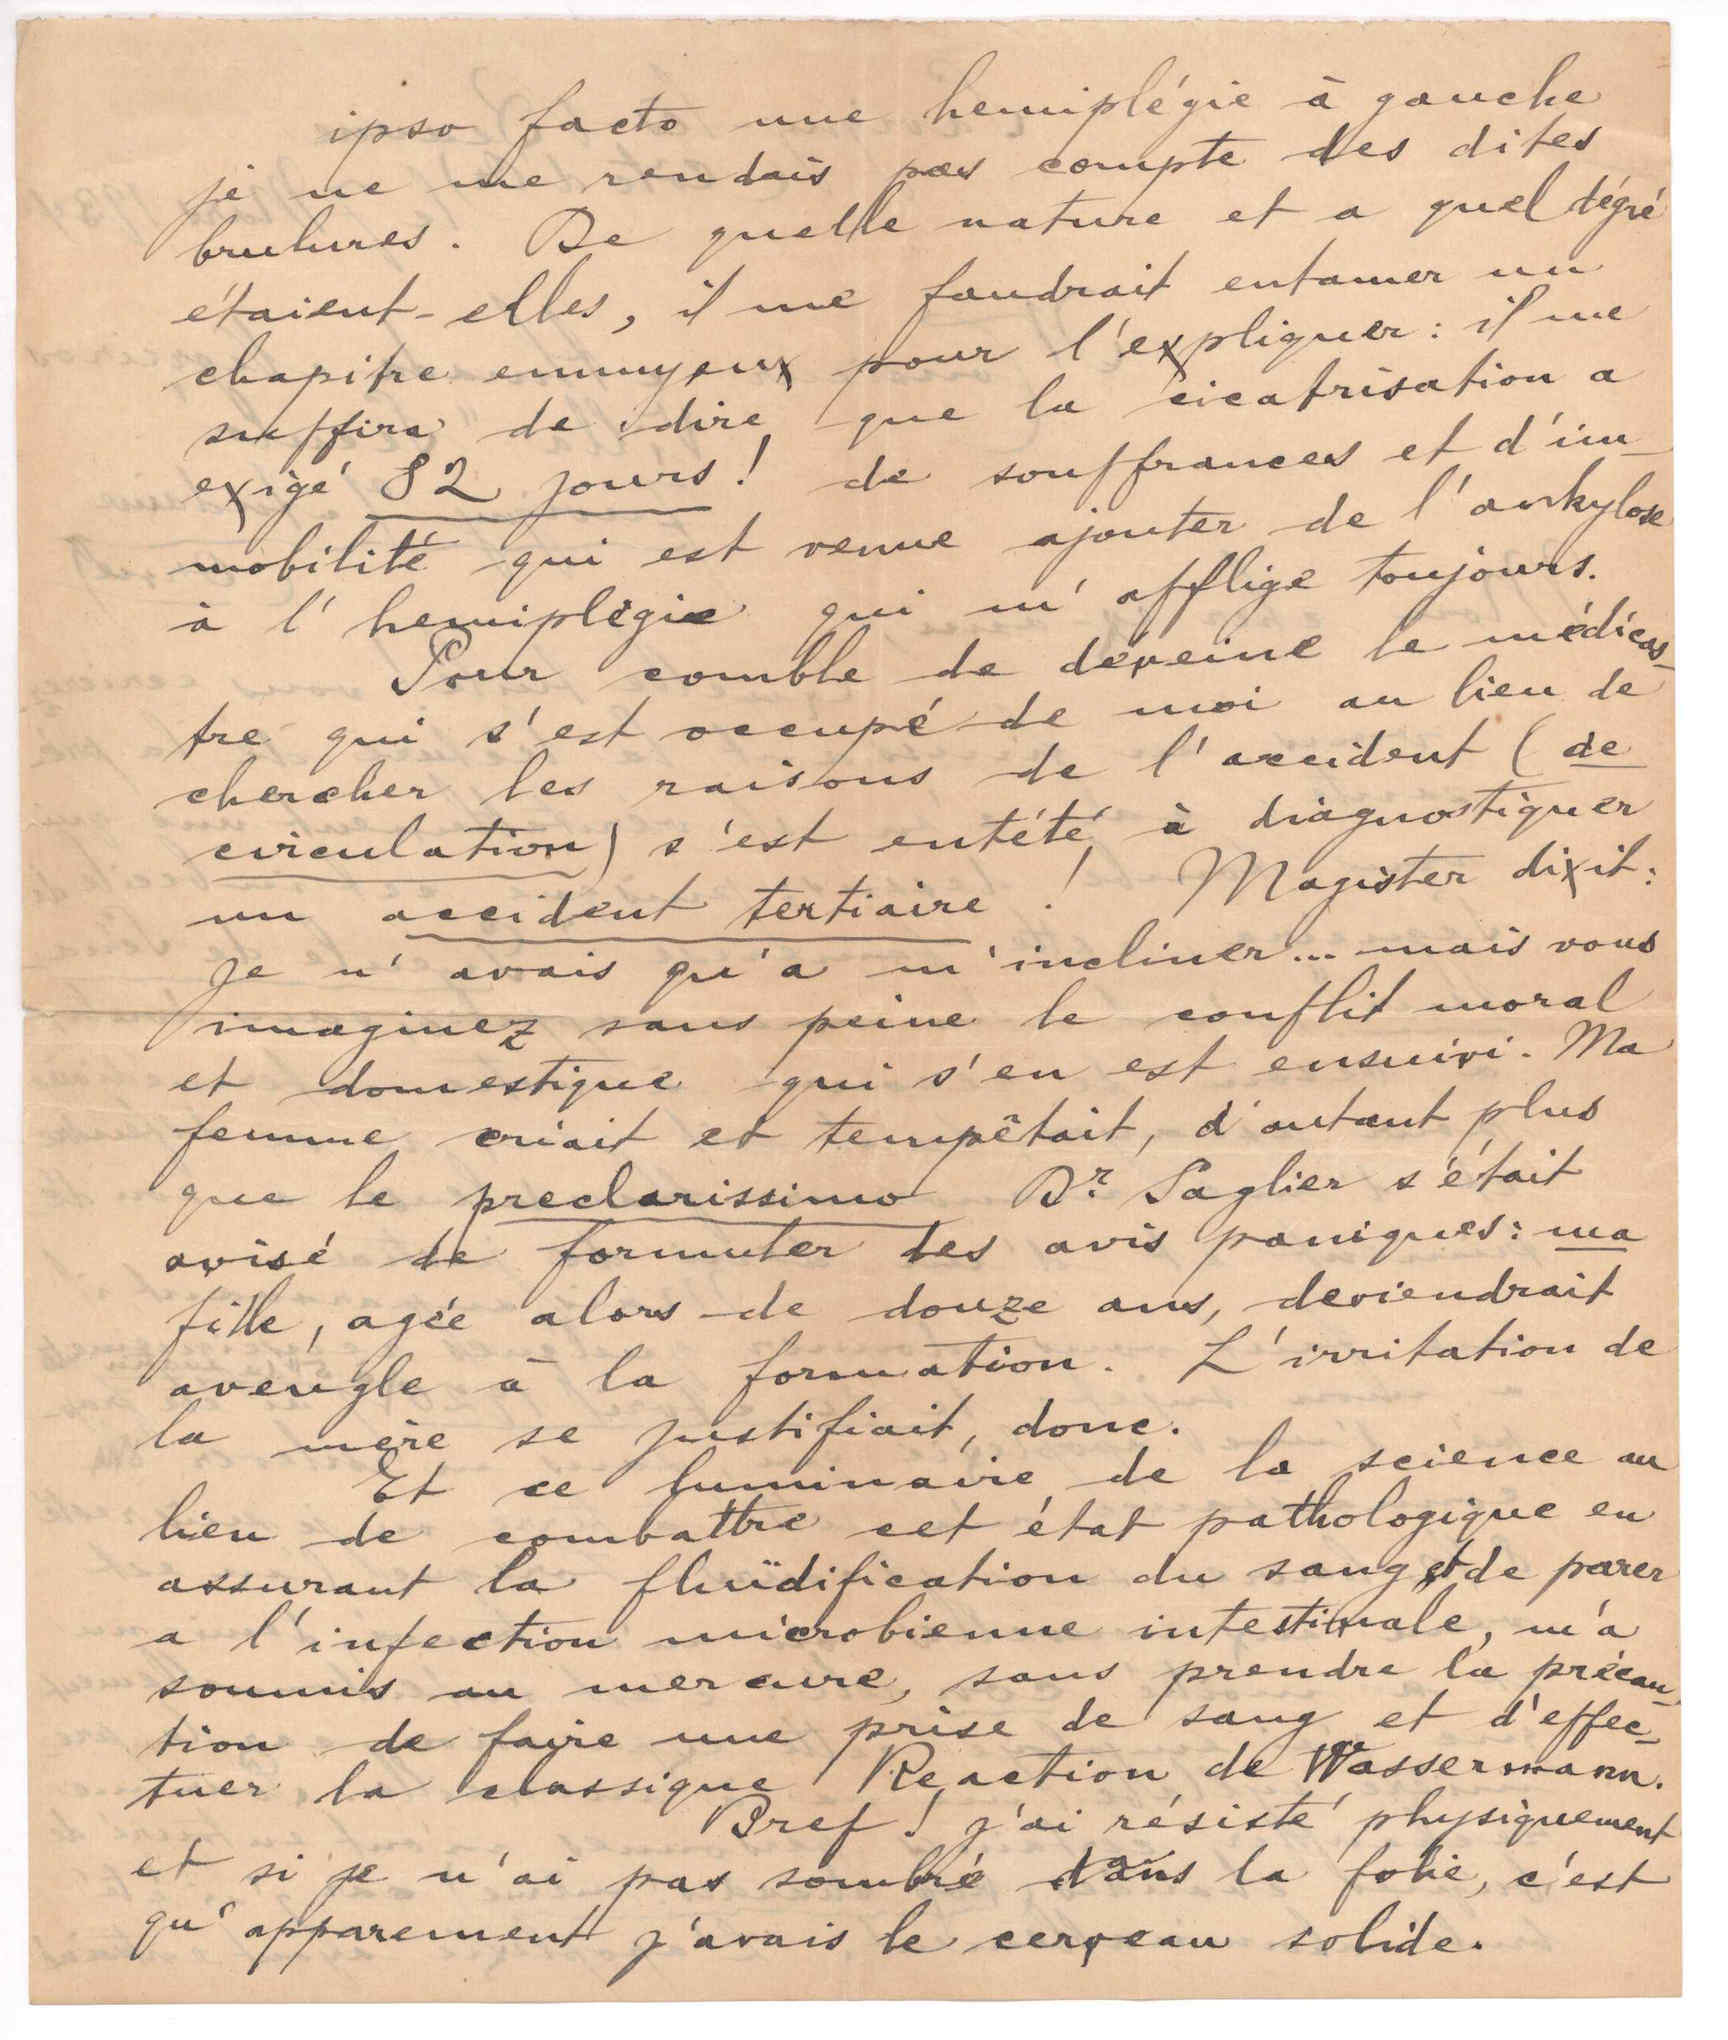 ipso facto une hemiplégie à gauche
je ne me rendais pas compte des dites
brulures. De quelle nature et a quel dégré
étaient-elles, il me faudrait entamer un
chapitre ennuyeux pour l'expliquer: il me
suffira de dire que la cicatrisation a
exigé 82 jours! de souffrances et d'im-
mobilité qui est venue ajouter de l'ankylose
à l'hemiplégie qui m'afflige toujours.
Pour comble de déveine le médicas-
tre qui s'est occupé de moi au lieu de
chercher les raisons de l'accident (de
circulation) s'est entété à diagnostiquer
un accident tertiaire! Magister dixit:
je n'avais qu'a m'incliner... mais vous
imaginez sans peine le conflit moral
et domestique qui s'en est ensuivi. Ma
femme criait et tempêtait, d'autant plus
que le preclarissimo Dr. Saglier s'était
avisé de formuler des avis paniques: ma
fille, agée alors de douze ans, deviendrait
aveugle à la formation. L'irritation de
la mère se justifiait, donc.
Et ce luminaire de la science au
lieu de combattre cet état pathologique en
assurant la fluïdification du sang et de parer
a l'infection microbienne intestinale, m'a
soumis au mercure, sans prendre la précau-
tion de faire une prise de sang et d'effec-
tuer la classique Reaction de Wassermann.
Bref! j'ai résisté physiquement
et si je n'ai pas sombré dans la folie, c'est
qu'apparement j'avais le cerveau solide.